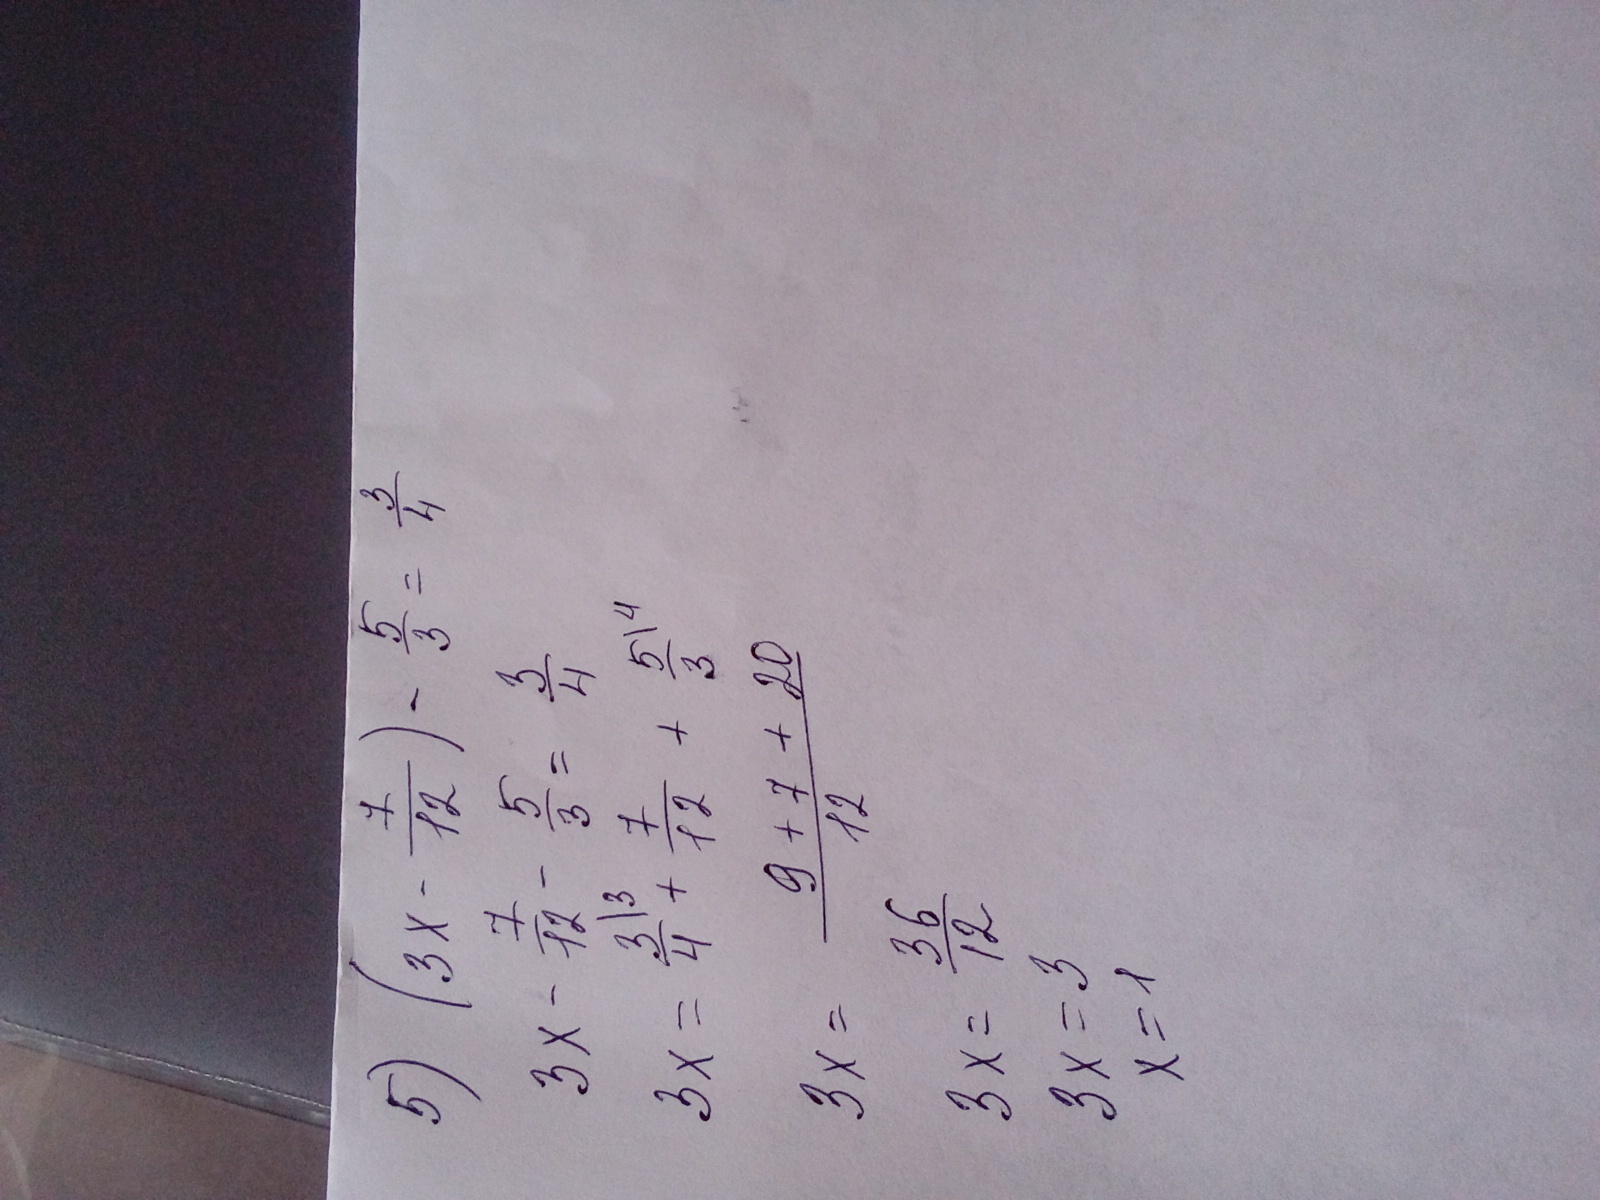 5) (3x - 7/12) - 5/3 = 3/4
3x - 7/12 - 5/3 = 3/4
3x = 3\3/4 + 7/12 + 5\4/3
3x = 9 + 7 + 20/12
3x = 36/12
3x = 3
x = 1